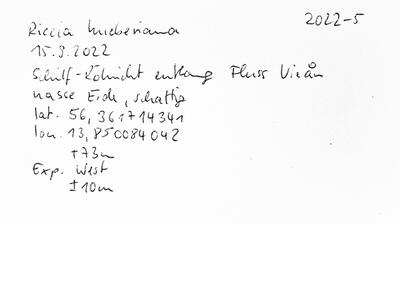 2022-5
Riccia hueberiana
15.9.2022
Schilf-Röhricht entlang Fluss Virån
nasse Erde, schattig
lat. 56,361714341
lon. 13,850084042
+73m
Exp. West
±10m